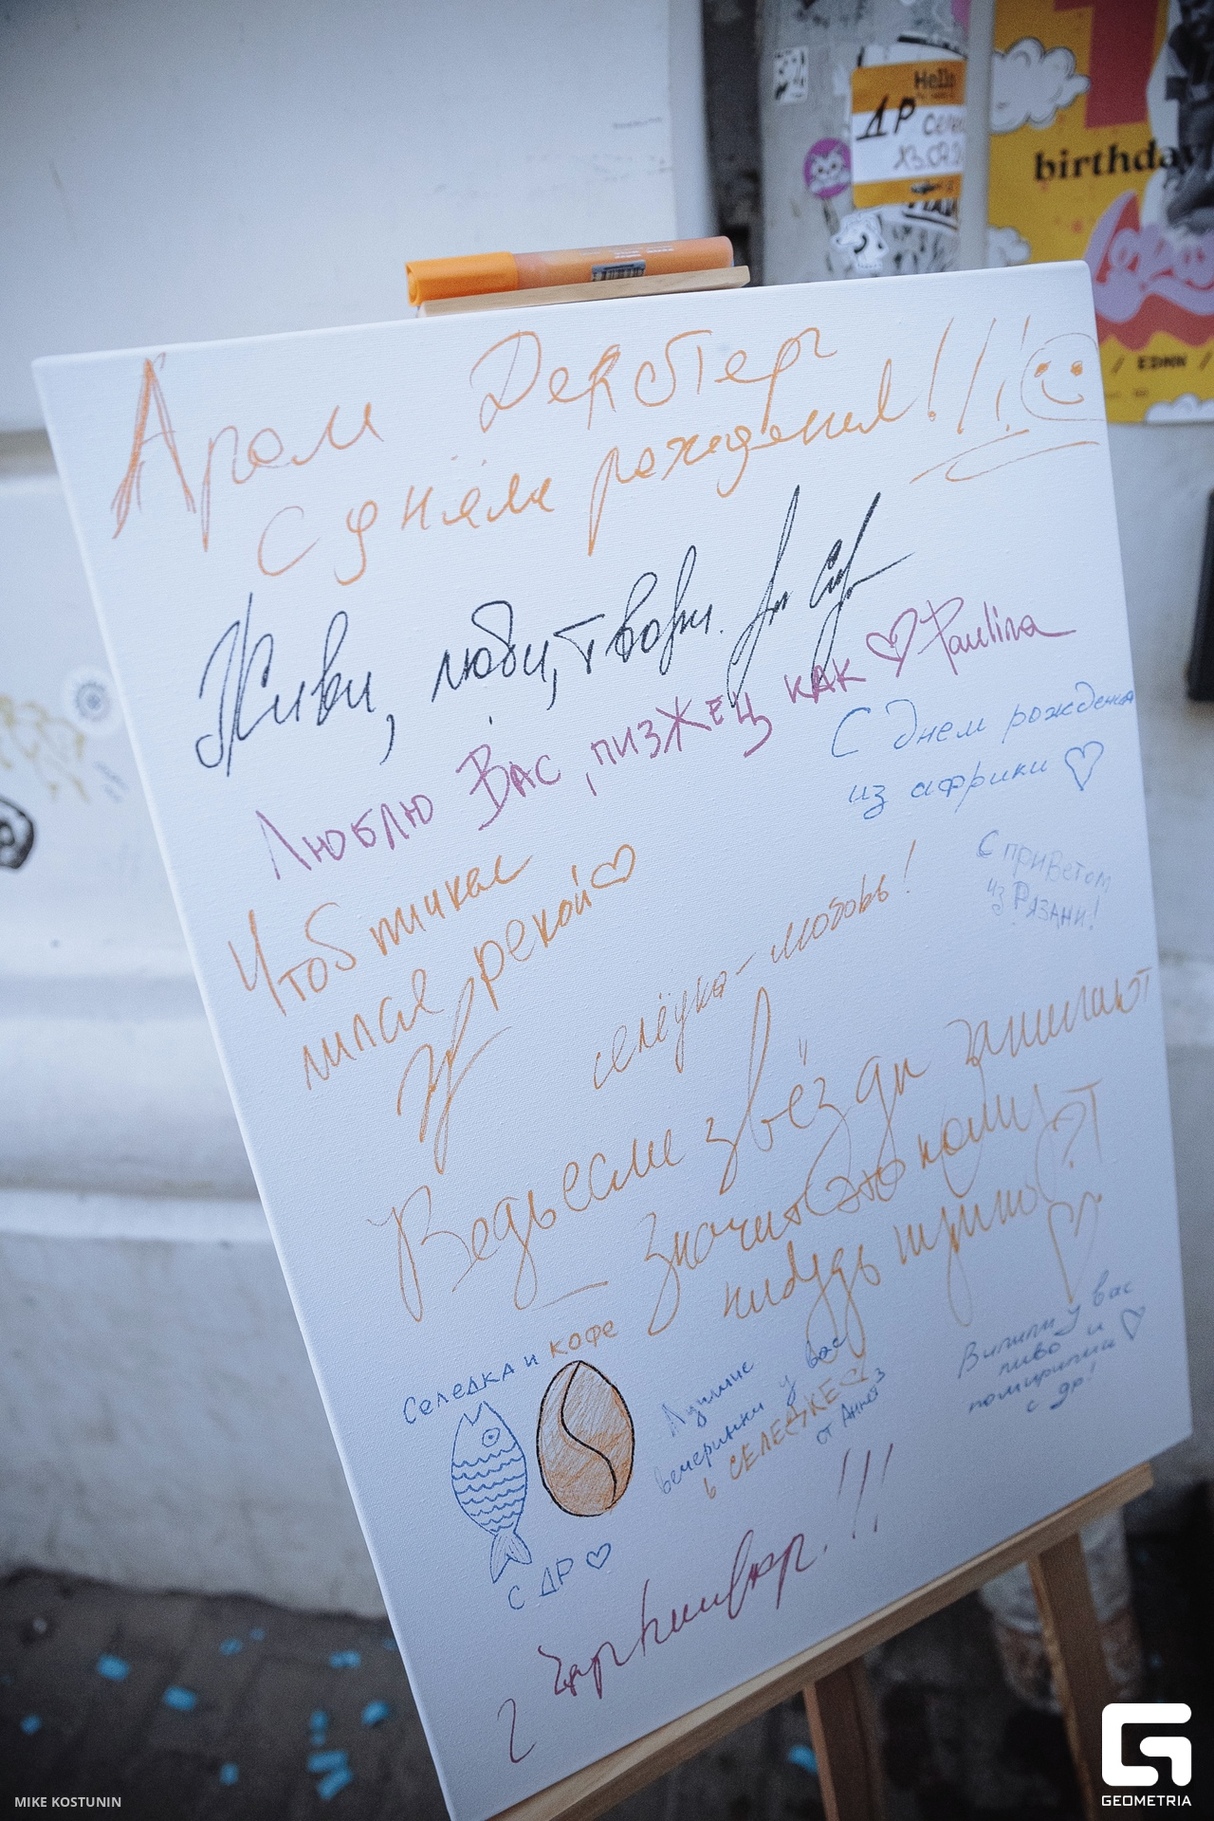 Hello
ДР
birthday
Аром Декстер
с днём рождения!!!
Живи, люби, твори.
Люблю Вас, пизЖец как ♡ Paulina
С Днем рождения
из африки ♡
Чтоб тикал
лился рекой ♡
С приветом
из Рязани!
селёдка-любовь!
Ведь если звёзды зажигают
— значит это кому
нибудь нужно?
Селедка и кофе
С ДР ♡
Лучшие
вечеринки у вас
в СЕЛЕДКЕ
от
Выпили у вас
пиво и
помирили
с др!
2
MIKE KOSTUNIN
GEOMETRIA